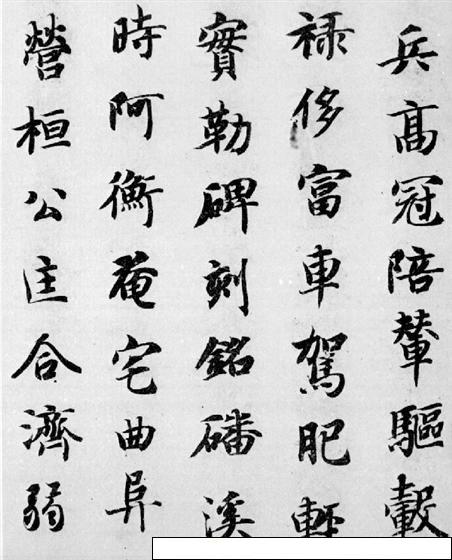 兵高冠陪輦驅轂
祿侈富車駕肥輕
實勒碑刻銘磻溪
時阿衡奄宅曲阜
營桓公匡合濟弱